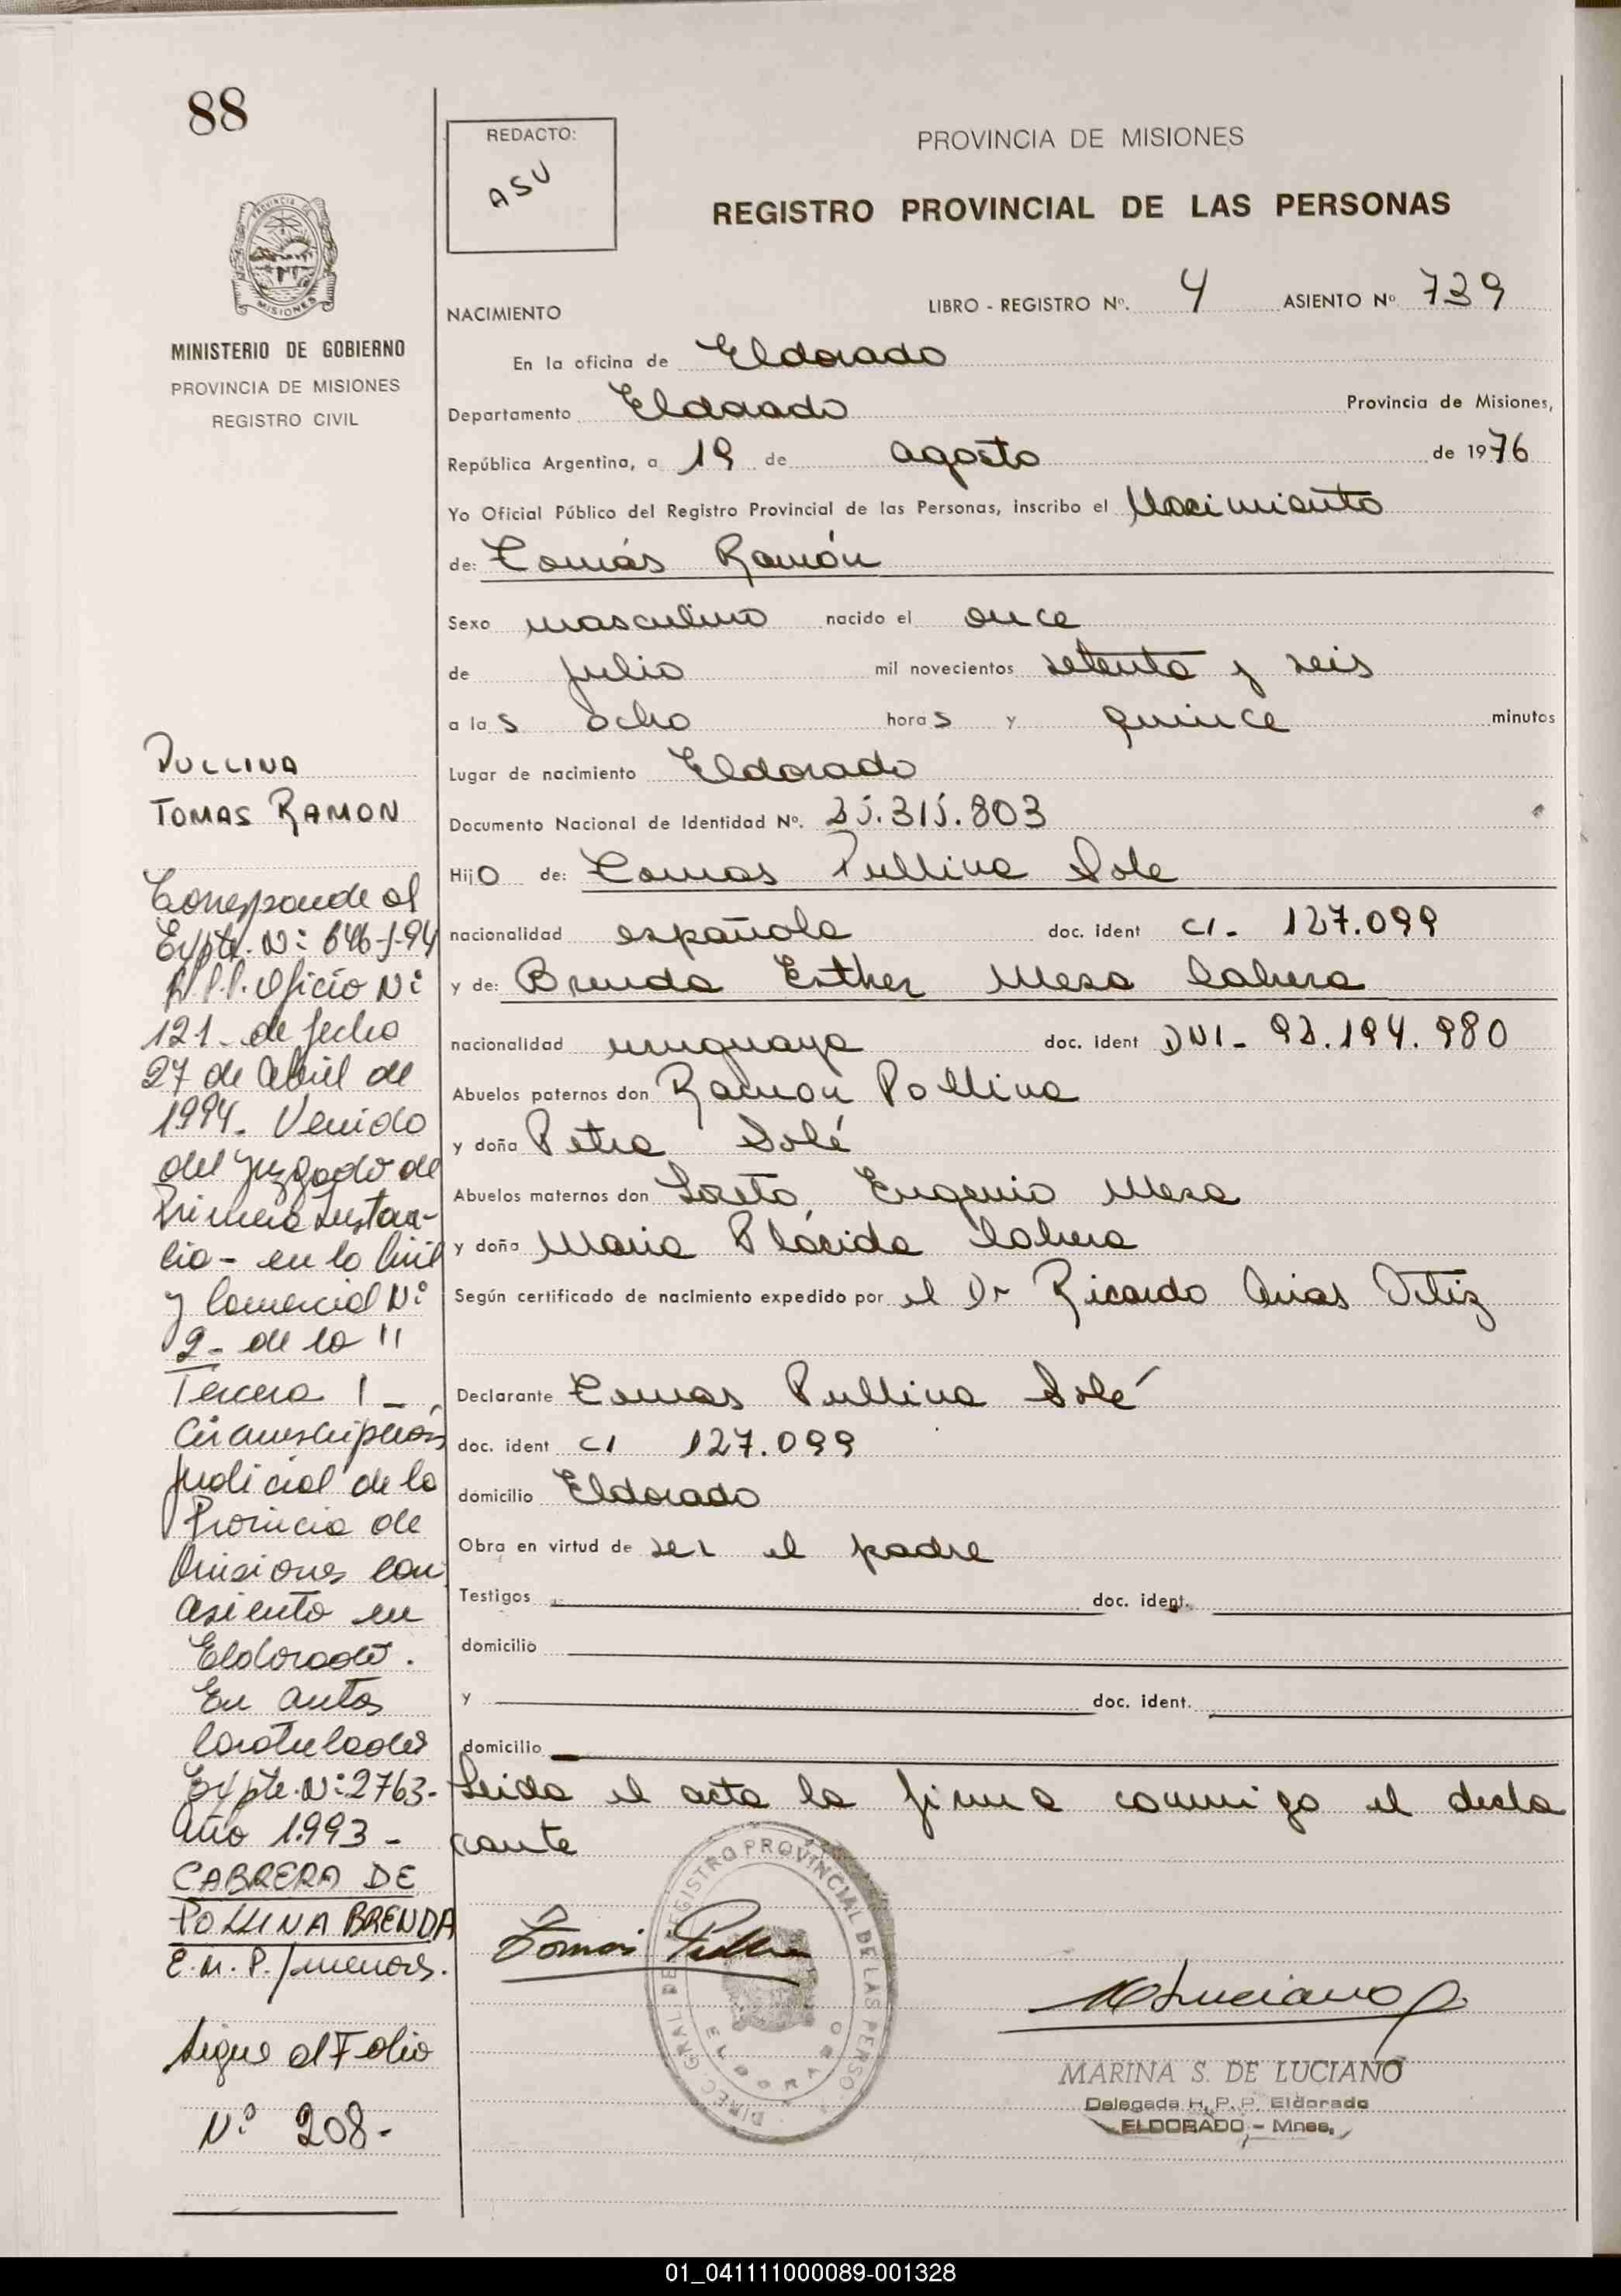 88
REDACTO:
ASU
PROVINCIA DE MISIONES
REGISTRO PROVINCIAL DE LAS PERSONAS
PROVINCIA
MISIONES
MINISTERIO DE GOBIERNO
PROVINCIA DE MISIONES
REGISTRO CIVIL
NACIMIENTO LIBRO - REGISTRO Nº. 4 ASIENTO Nº 739
En la oficina de Eldorado
Departamento Eldorado Provincia de Misiones,
República Argentina, a 19 de agosto de 1976
Yo Oficial Público del Registro Provincial de las Personas, inscribo el Nacimiento
de: Tomás Ramón
Sexo masculino nacido el once
de julio mil novecientos setenta y seis
a las ocho horas y quince minutos
Lugar de nacimiento Eldorado
Documento Nacional de Identidad Nº. 25.315.803
Hijo de: Tomas Pullina Sole
nacionalidad española doc. ident CI - 127.099
y de: Brenda Esther Mesa Cabrera
nacionalidad uruguaya doc. ident DNI - 92.194.980
Abuelos paternos don Ramon Pollina
y doña Petra Solé
Abuelos maternos don Loreto Eugenio Mesa
y doña Maria Plácida Cabrera
Según certificado de nacimiento expedido por el Dr Ricardo Arias Ortiz
Declarante Tomas Pullina Solé
doc. ident CI 127.099
domicilio Eldorado
Obra en virtud de ser el padre
Testigos doc. ident.
domicilio
y doc. ident.
domicilio
Leida el acta la firma conmigo el decla
rante
Tomas Pullina
DIREC. GRAL. DE REGISTRO PROVINCIAL DE LAS PERSO.
ELDORADO
MARINA S. DE LUCIANO
Delegada R. P. P. Eldorado
ELDORADO - Mnes.
PULLINA
TOMAS RAMON
Corresponde al
Expte. Nº: 646-J-94
R.P.P. Oficio Nº
121 - de fecha
27 de Abril de
1994. Venido
del Juzgado de
Primera Instan-
cia - en lo Civil
y Comercial Nº
2 - de la "
Tercera
Circunscripción
Judicial de la
Provincia de
Misiones con
asiento en
Eldorado.
En autos
Caratulados
Expte. Nº: 2763-
Año 1.993 -
CABRERA DE
POLLINA BRENDA
E. M. P./menores.
Sigue al Folio
Nº 208-
01_041111000089-001328